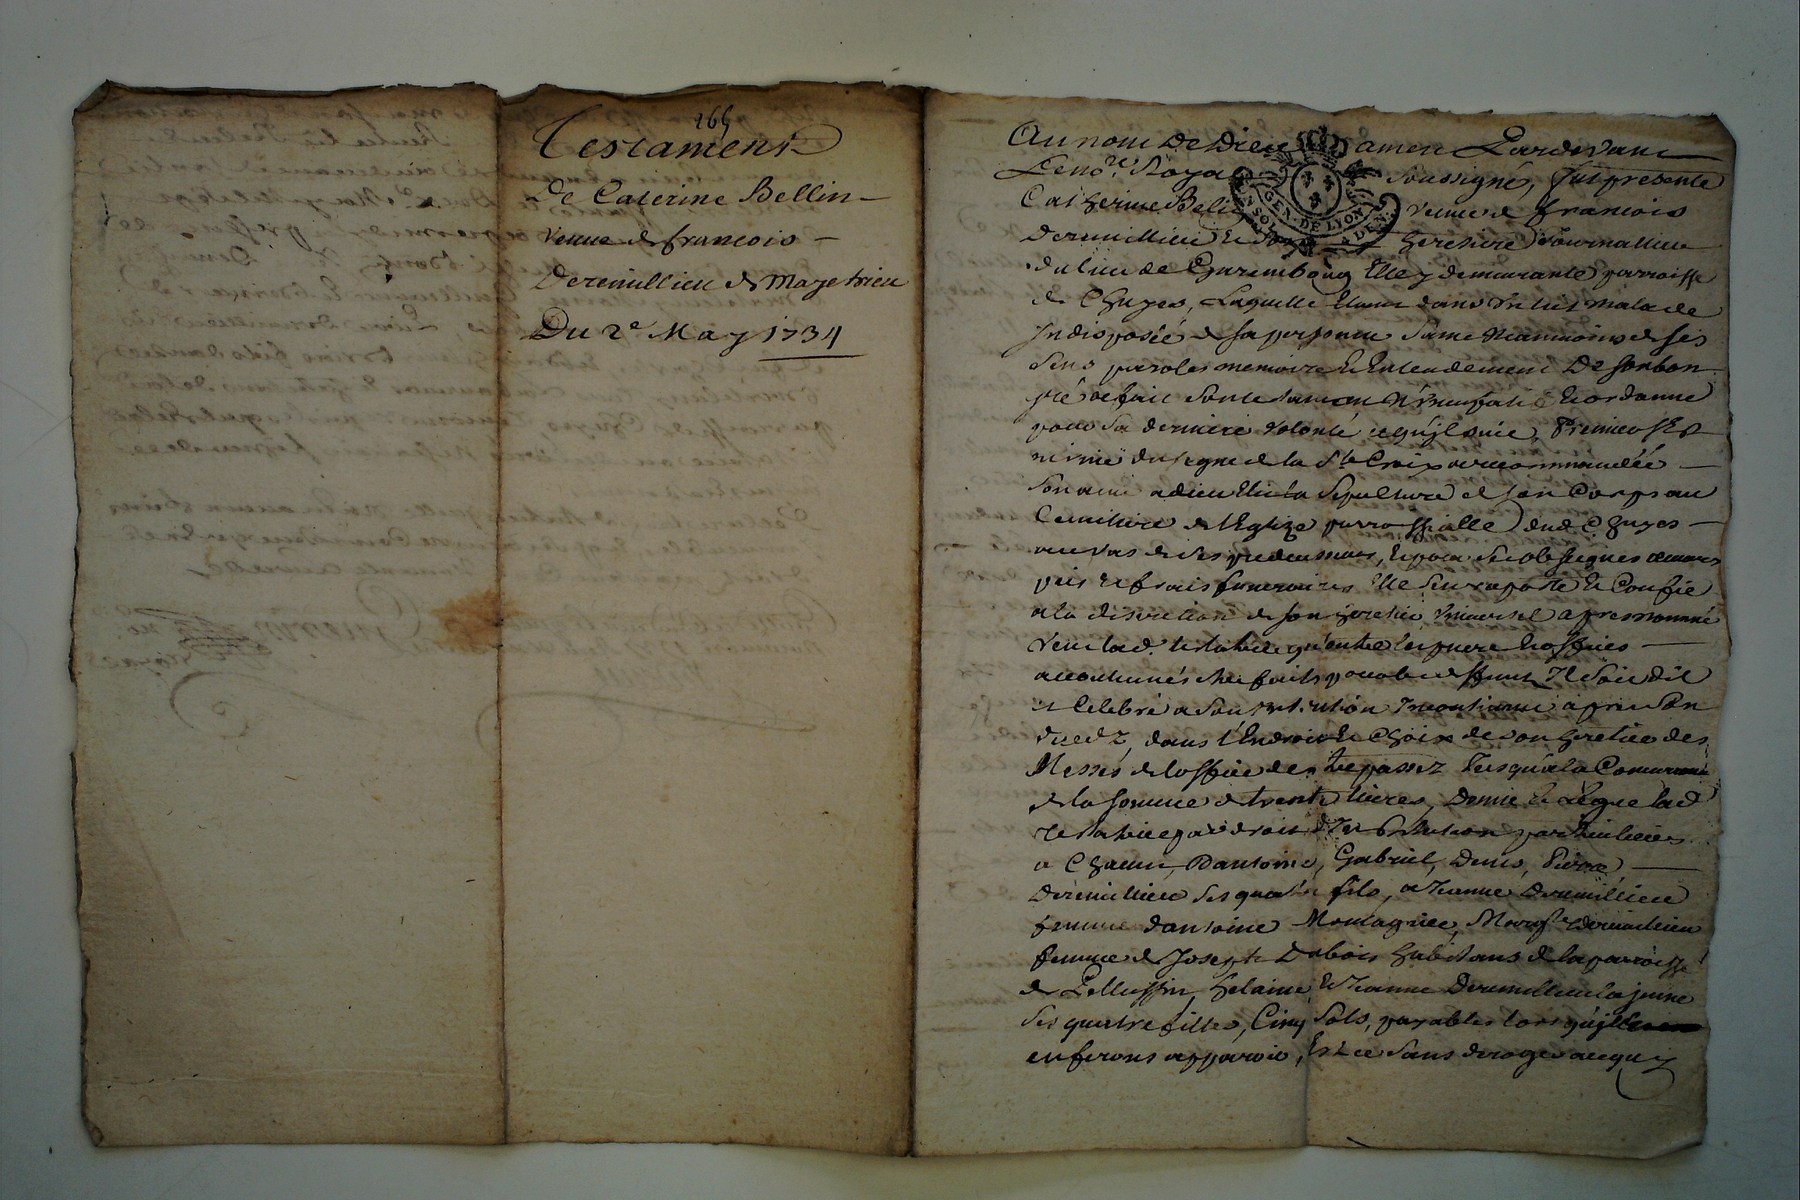 165
Testament
De Caterine Bellin
veuve de francois
Deremillieu de Mazetrieu
Du 2e May 1734
Au nom De Dieu amen Pardevant
Le no.re Royal Soussigné, fut presente
Catherine Belin veuve de francois
Deremillieu
du lieu de Elle y demeurante parroisse
de Chuyes, Laquelle Etant dans un lict malade
Indisposée de sa personne Saine Neanmoins de ses
Sens paroles memoire Et Entendement De son bon
gré a fait son testament Et ordonne
pour sa derniere volonté ce qu'il suit, Premierement
munie du signe de la Ste Croix a recommandée
son ame a dieu Elit la Sepulture de son Corps au
Cemitiere de l'Eglize parroissialle dud Chuyes
de ses predecesseurs, Et pour ses obseques
et frais funeraires Elle s'en raporte Et Confie
a la discretion de son heretier universel apres nommé
Veut lad. testatrice qu'outre les priere Et offices
accoutumés Etre faits pour les deffunts Il soit dit
et Celebré a son intention Incontinent apres son
deced, dans l'Endroit Et Choix de son heretier des
Messes de l'office des trepassez Jusqu'a la Concurrance
de la somme de trente livres, Donne Et Legue lad
Testatrice par droit d'Institution particuliere
a Chacun D'antoine, Gabriel, Denis, Pierre
Deremillieu ses quatre fils, a Jeanne Deremillieu
femme d'antoine Montagnier, Margte Deremillieu
femme de Joseph Dubois habitans de la parroisse
de Pellussin, helaine, Et Jeanne Deremillieu la jeune
ses quatre filles, Cinq Sols, payables lors qu'ils
en feront apparoir, Et ce sans deroger a ce qui
GEN. DE LYON